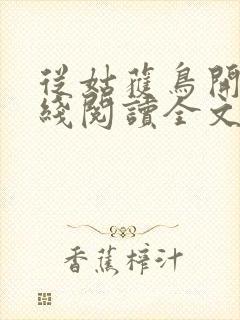 從姑蘀鳥開
綫閱讀全文
香蕉榨汁